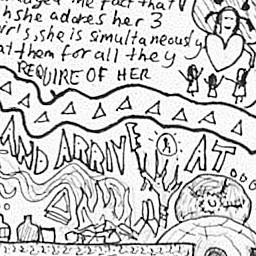 the fact that
she adores her 3
girls, she is simultaneously
at them for all they
REQUIRE OF HER
AND ARRIVE AT...